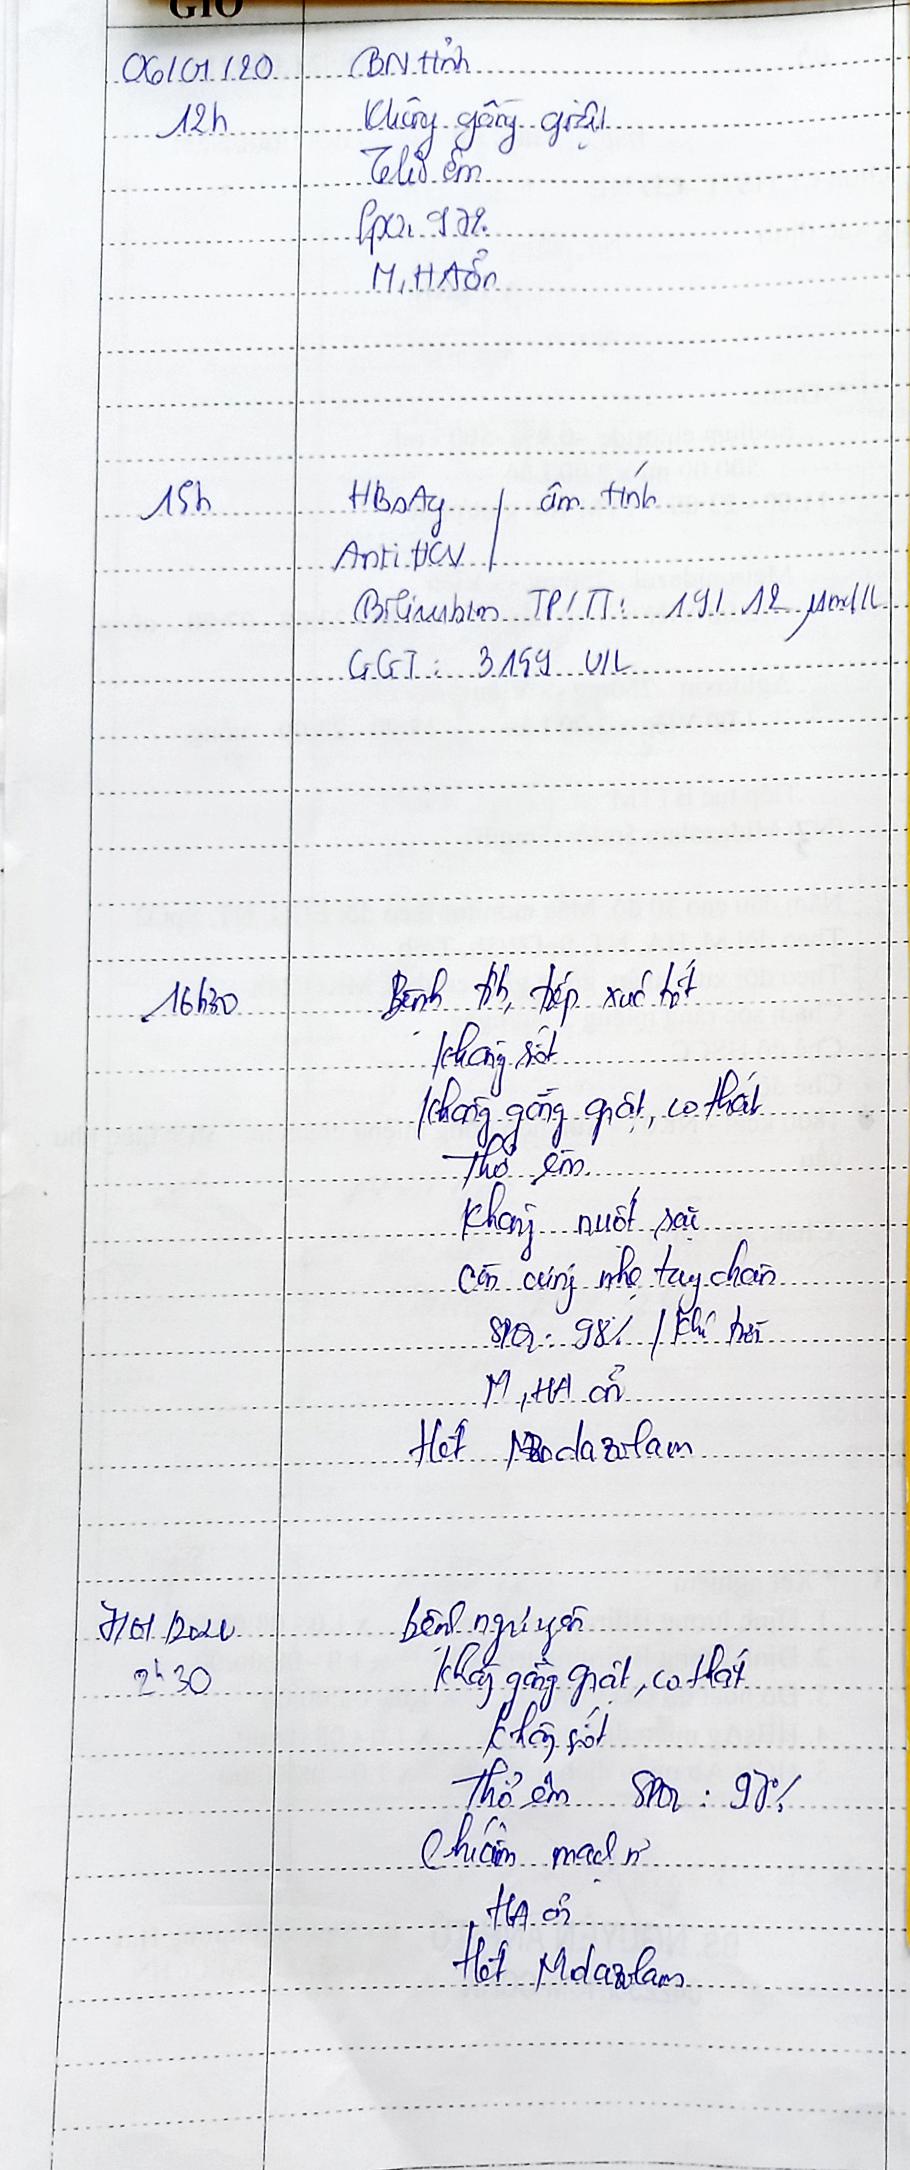 GIỜ
06/01/20 BN tỉnh
12h Không gồng giật
Thở êm
SpO2 97%
M, HA ổn
15h HBsAg / âm tính
Anti HCV
Bilirubin TP/TT: 19/12 µmol/L
GGT: 3159 U/L
16h30 Bệnh tỉnh, tiếp xúc tốt
Không sốt
Không gồng giật, co thắt
Thở êm
Không nuốt sặc
Còn cứng nhẹ tay chân
SPO2: 98% / Khí trời
M, HA ổn
Hết Midazolam
7/01/2020 bệnh nguyên
2h30 Không gồng giật, co thắt
không sốt
Thở êm SPO2: 97%
mạch rõ
HA ổn
Hết Midazolam